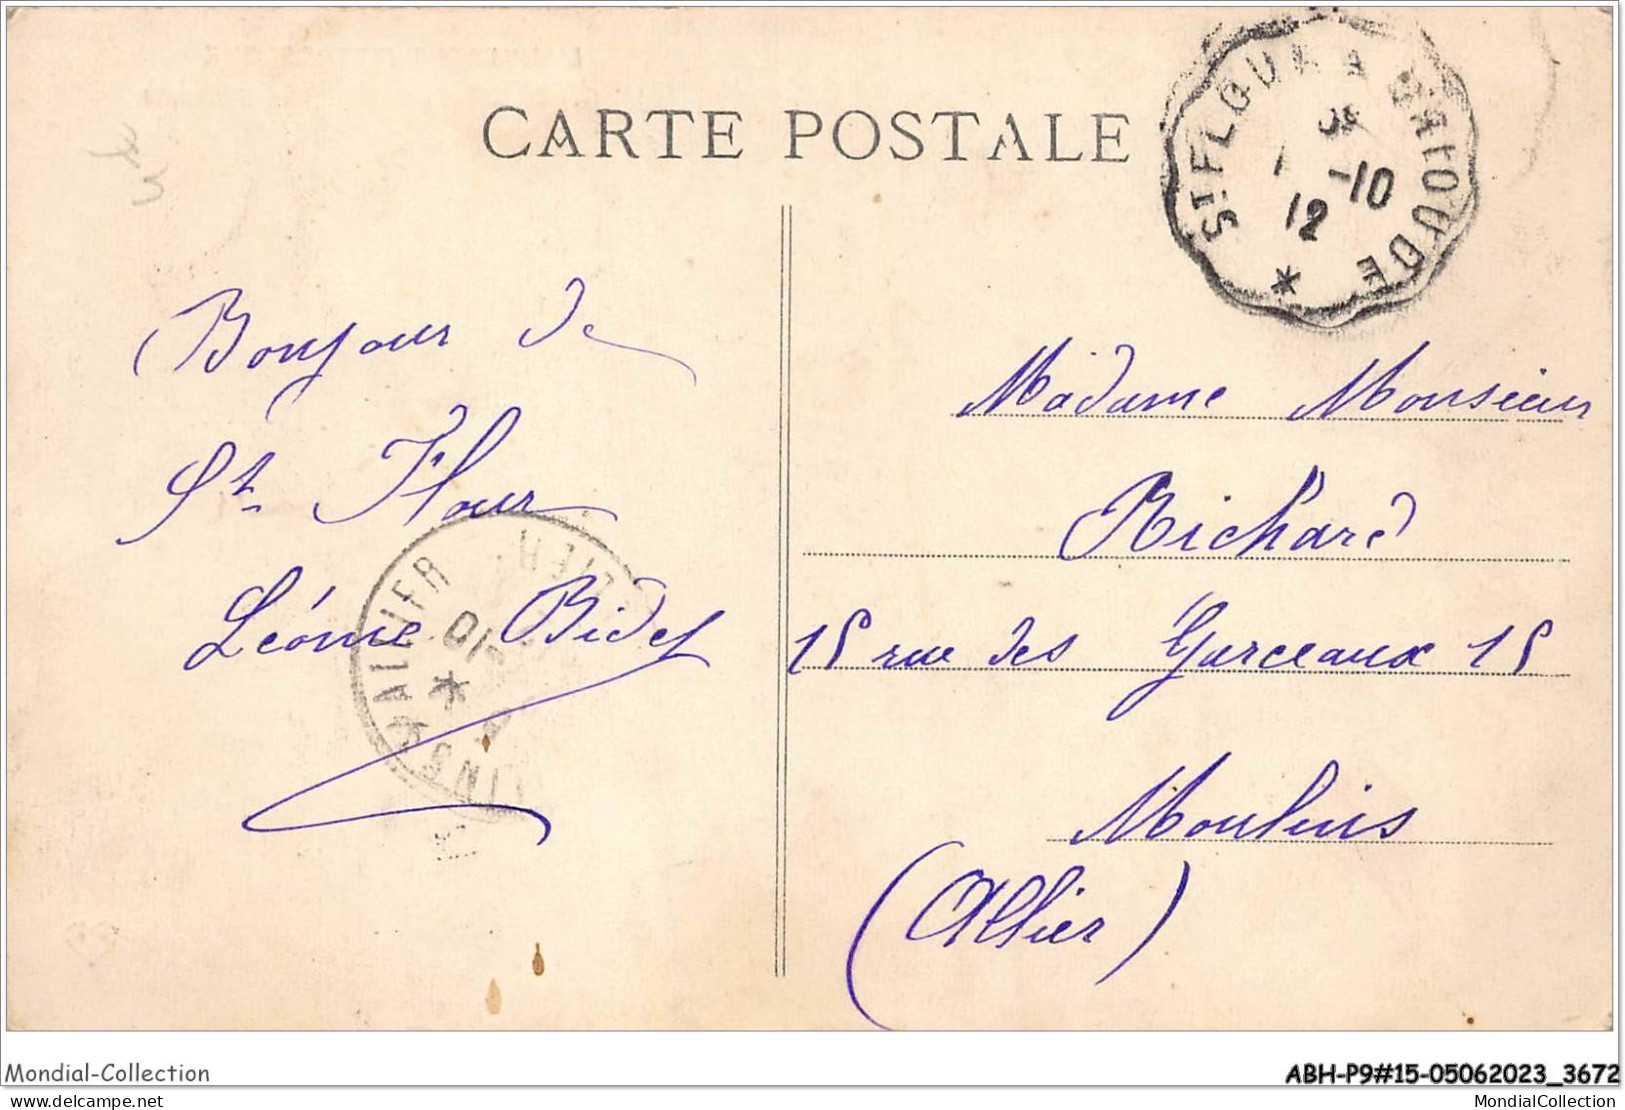 CARTE POSTALE
ST FLOUR A BRIOUDE
1 -10
12
Bonjour de
St Flour
Léonie Bidet
Madame Monsieur
Richard
15 rue des Garceaux 15
Moulins
(Allier)
ALLIER
10
Mondial-Collection
ABH-P9#15-05062023_3672
delcampe.net
MondialCollection